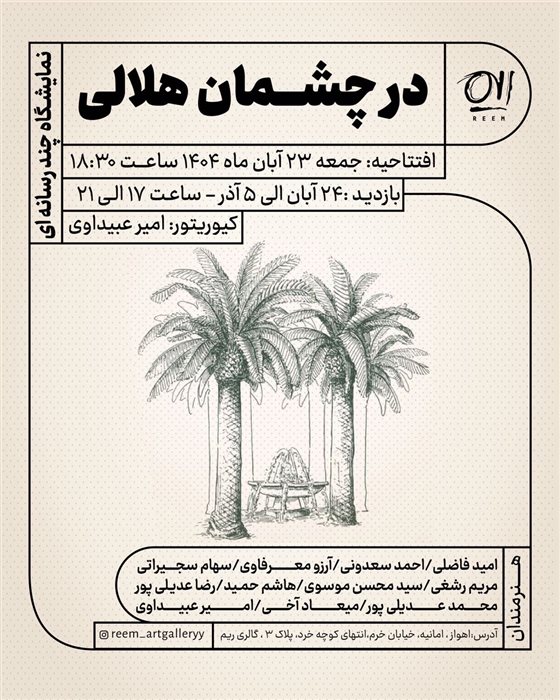 نمایشگاه چند رسانه ای
در چشمان هلالی
REEM
افتتاحیه: جمعه ۲۳ آبان ماه ۱۴۰۴ ساعت ۱۸:۳۰
بازدید :۲۴ آبان الی ۵ آذر - ساعت ۱۷ الی ۲۱
کیوریتور: امیر عبیداوی
هنرمندان
امید فاضلی/احمد سعدونی/آرزو معرفاوی/سهام سجیراتی
مریم رشغی/سید محسن موسوی/هاشم حمید/رضا عدیلی پور
محمد عدیلی پور/میعاد آخی/امیر عبیداوی
آدرس:اهواز ، امانیه، خیابان خرم،انتهای کوچه خرد، پلاک ۳ ، گالری ریم
reem_artgalleryy